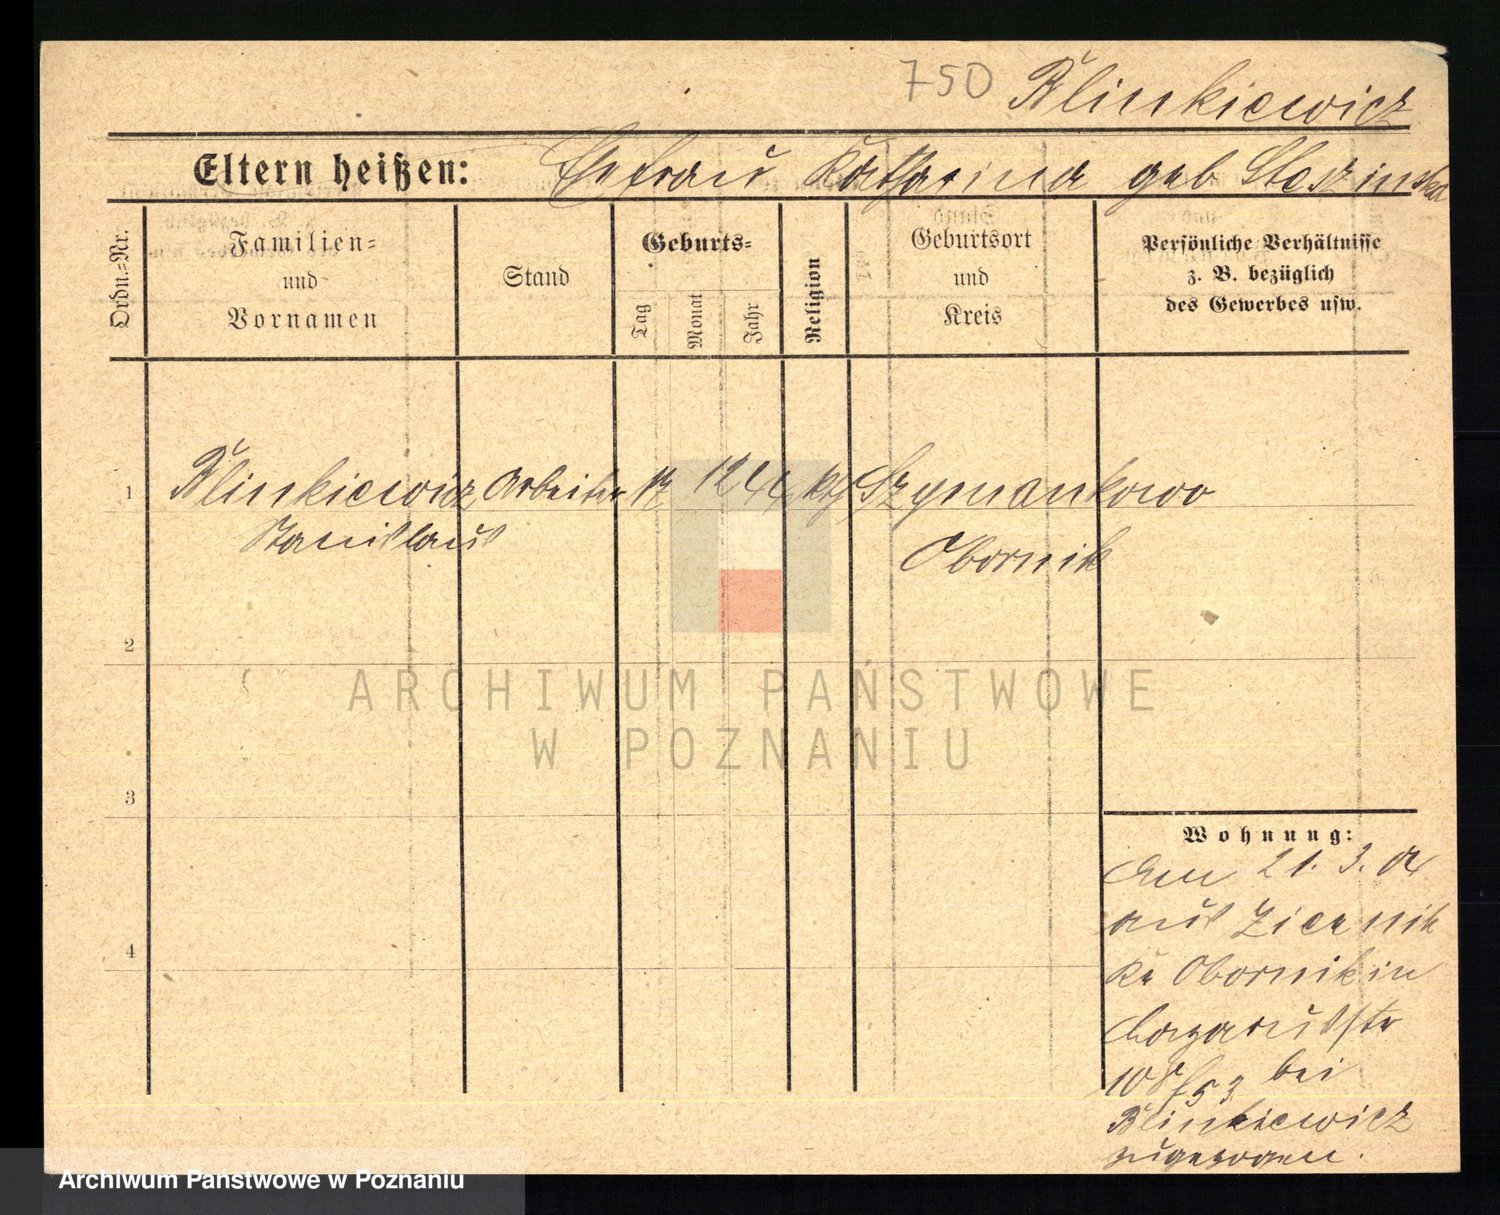 750 Klinkiewicz
Eltern heißen: Ehefrau Katharina geb
Ordn.-Nr.
Familien-
und
Vornamen
Stand
Geburts-
Tag
Monat
Jahr
Religion
Geburtsort
und
Kreis
Persönliche Verhältnisse
z. B. bezüglich
des Gewerbes usw.
1 Klinkiewicz Arbeiter 12 kth Szymankowo
Stanislaus
Obornik
2
ARCHIWUM PAŃSTWOWE
W POZNANIU
3
4
Wohnung:
Am 21. 3. 04
aus
Kr Obornik in
Lazarusstr
bei
Klinkiewicz
zugezogen.
Archiwum Państwowe w Poznaniu